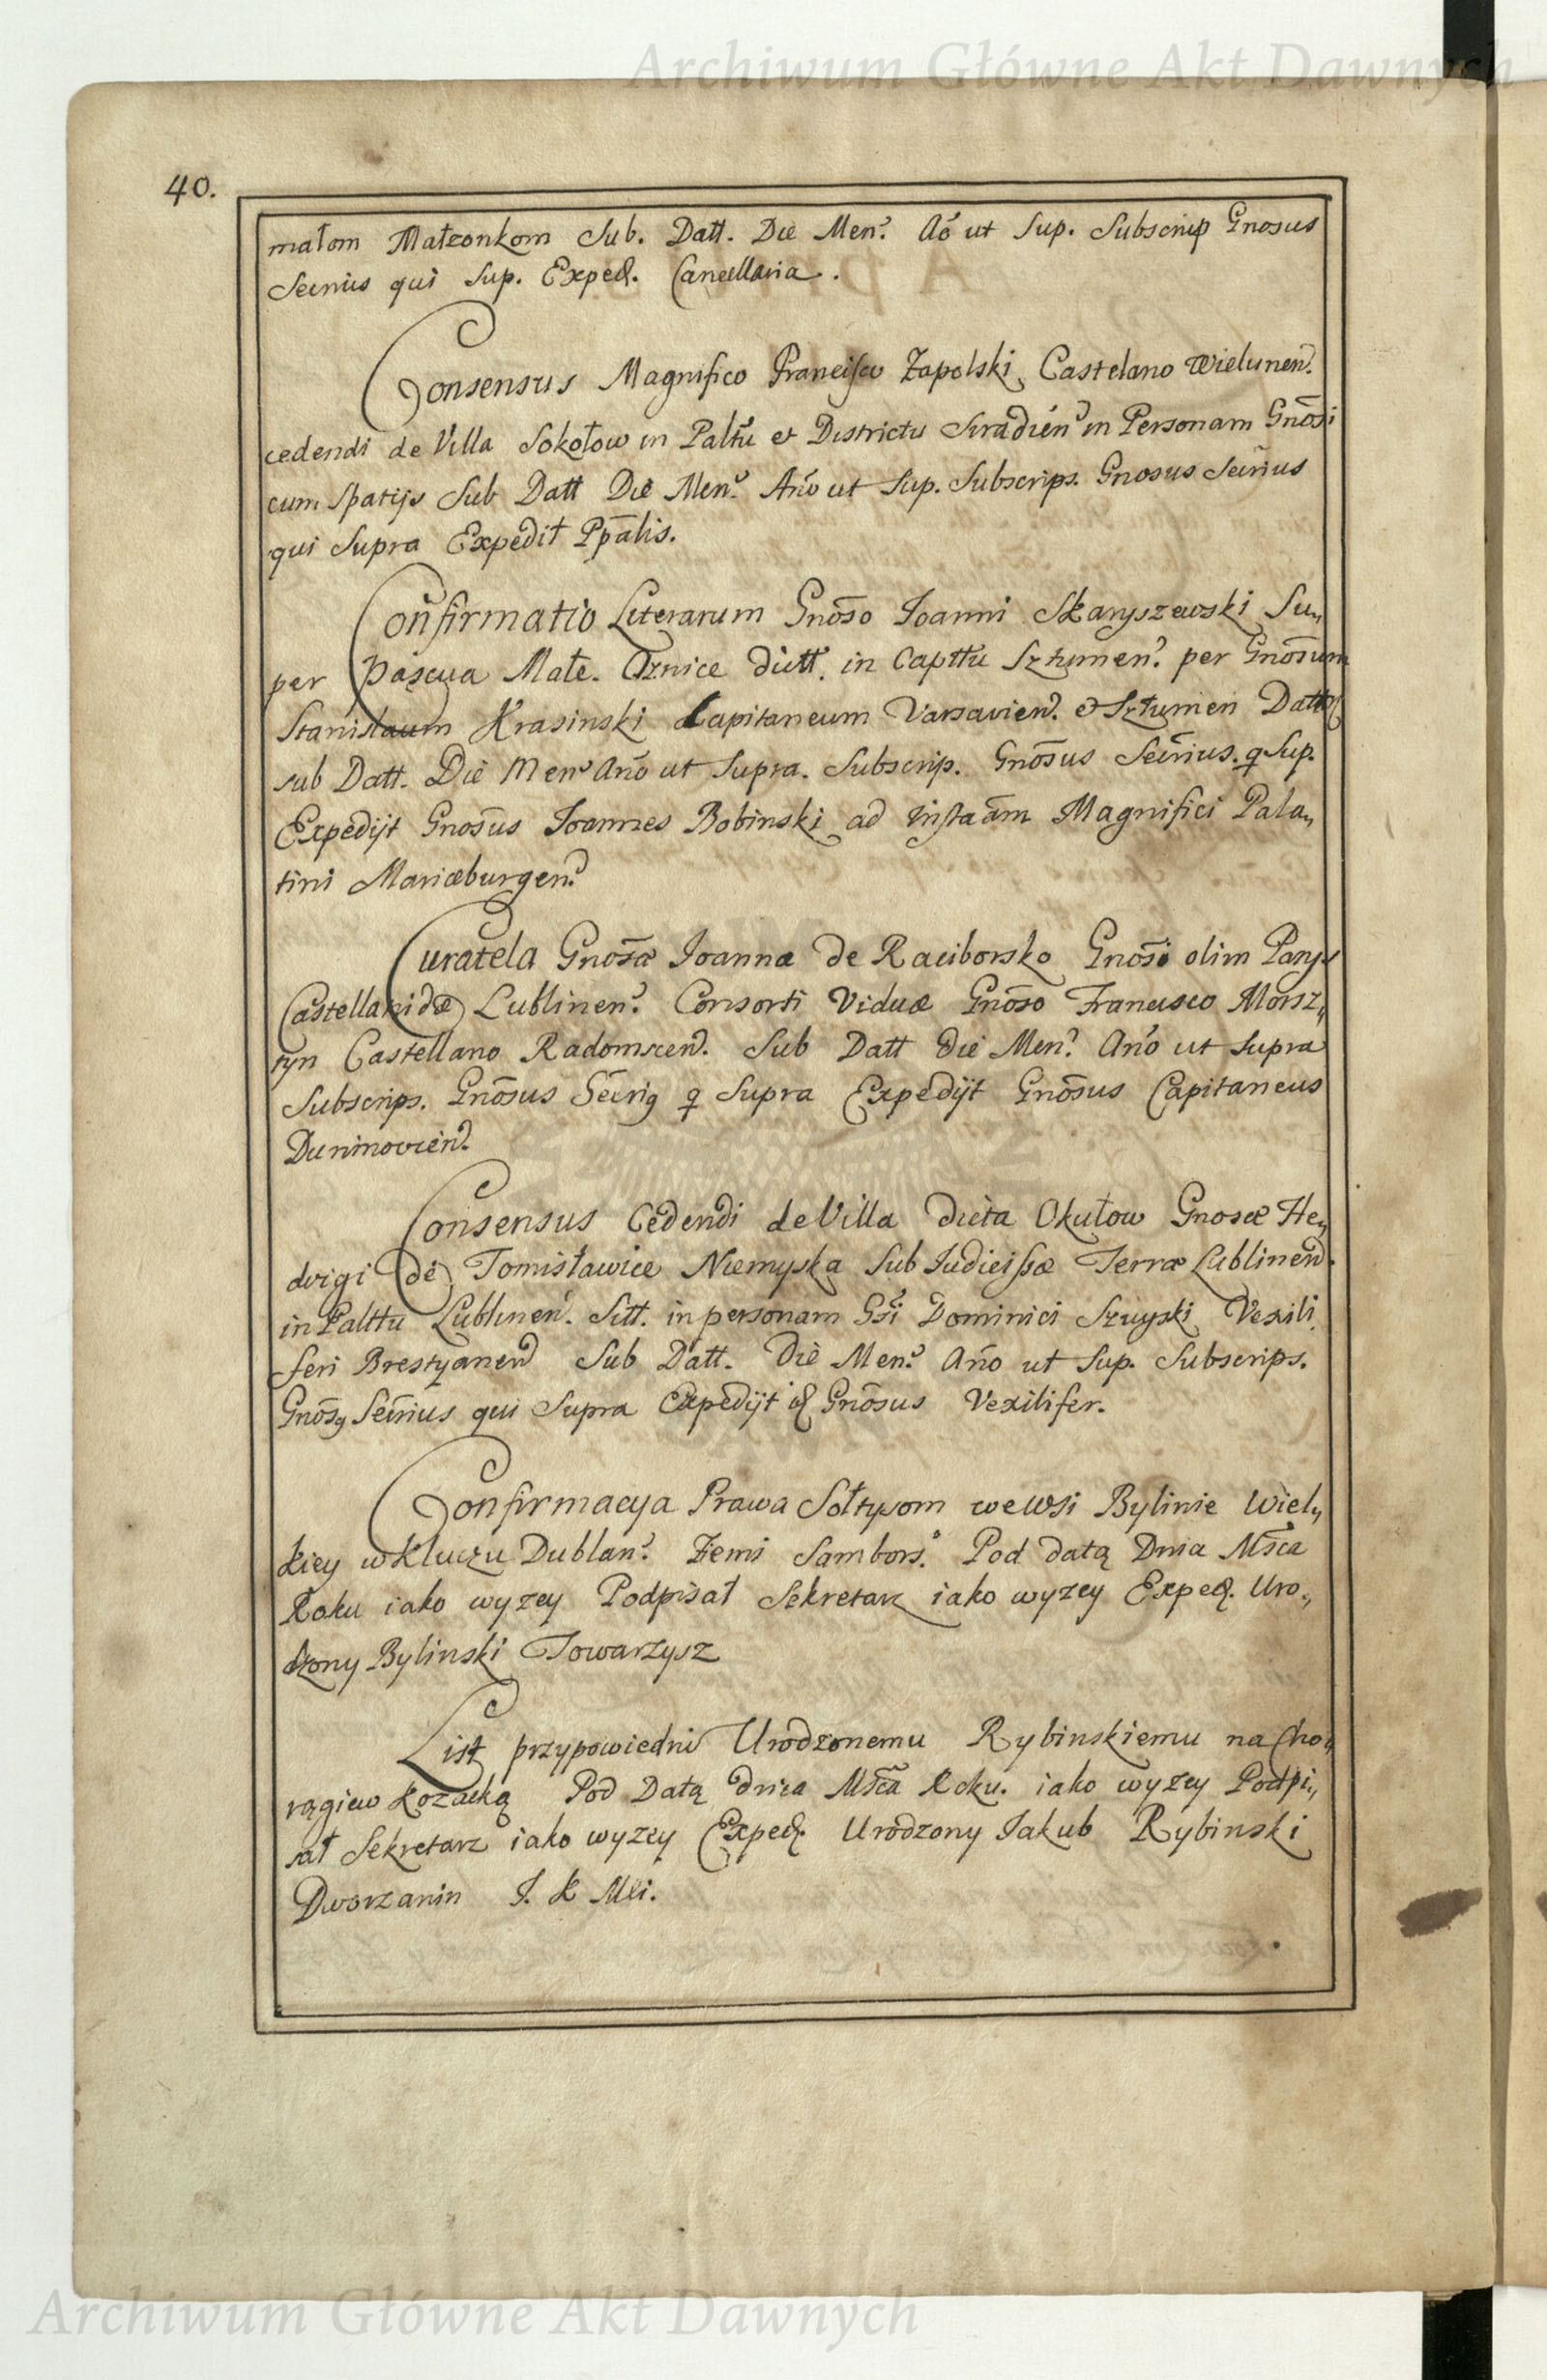 Archiwum Główne Akt Dawnych
40.
małom Małzonkom Sub. Datt. Die Men? Aō ut Sup. Subscrip Gnosus
Secrius qui Sup. Exped. Cancellaria.
Consensus Magnifico Francisco Zapolski Castelano Wielunen.
cedendi de Villa Sokołow in Palttu et Districtu Siradien in Personam Gnōsi
cum Spatijs Sub Datt Die Men? Año ut Sup. Subscrips. Gnosus Secrius
qui Supra Expedit Ppālis.
Confirmatio Literarum Gnōso Joanni Skaryszewski Su„
per Pascua Małe dictt. in Capttu Sztumen? per Gnōsum
Stanislaum Krasinski Capitaneum Varsavien. et Sztumen Datt
sub Datt. Die Men Año ut Supra. Subscrip. Gnōsus Secrius. q Sup.
Expedijt Gnosus Joannes Bobinski ad instaām Magnifici Pala„
tini Mariæburgen?
Curatela Gnosæ Joannæ de Raciborsko Gnōsi olim
Castellanidæ Lublinen? Consorti Viduæ Gnōso Francisco Morsz„
tyn Castellano Radomscen. Sub Datt Die Men? Año ut Supra
Subscrips. Gnōsus Secrig q Supra Expedijt Gnōsus Capitaneus
Duninovien.
Consensus Cedendi de Villa dicta Okułow Gnosæ He„
dvigi de Tomisławice Niemyska Sub Judicissæ Terræ Lublinen.
in Palttu Lublinen. Sitt. in personam Gsi Dominici Szuyski Vexili
feri Brestyanen Sub Datt. Die Men? Año ut Sup. Subscrips.
Gnōsq Secrius qui Supra Expedijt id Gnōsus Vexilifer.
Confirmacya Prawa Sołtysom we Wsi Bylinie Wiel„
kiey w Kluczu Dublan? Ziemi Sambors. Pod datą Dnia Msca
Roku iako wyzey Podpisał Sekretarz iako wyzey Exped. Uro„
dzony Bylinski Towarzysz
List przypowiedni Urodzonemu Rybinskiemu na Cho„
rągiew Kozacką Pod Datą dnia Msca Roku. iako wyzey Podpi„
sał Sekretarz iako wyzey Exped. Urodzony Jakub Rybinski
Dworzanin J. K Mći.
Archiwum Główne Akt Dawnych